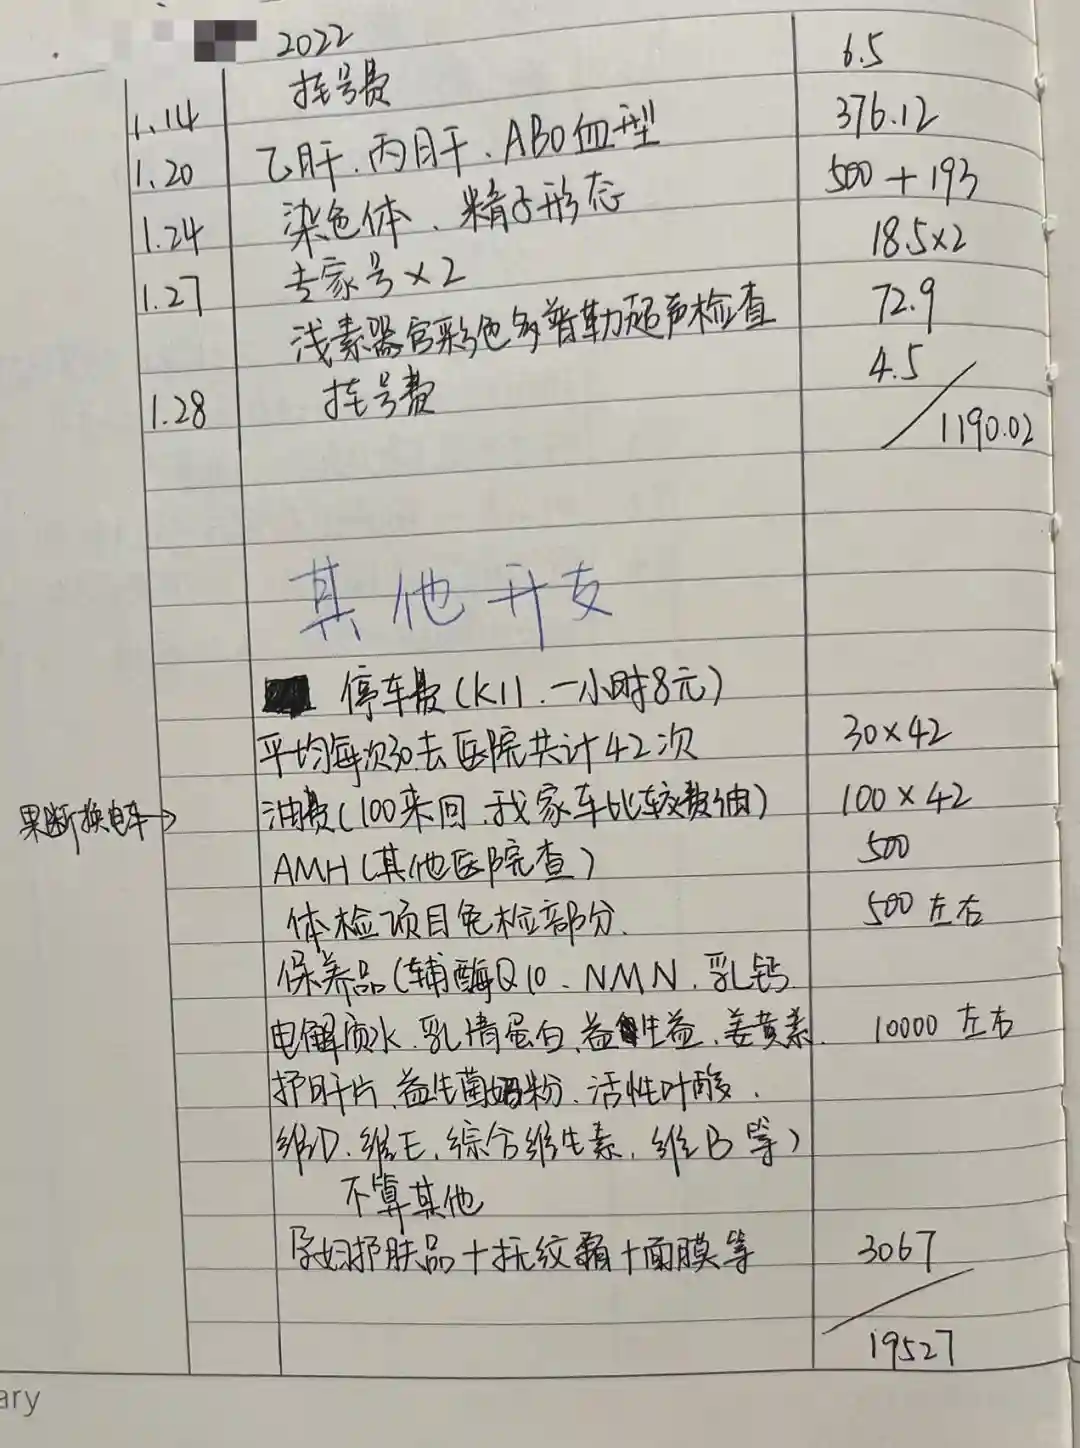 2022
1.14 挂号费 6.5
1.20 乙肝、丙肝、ABO血型 376.12
1.24 染色体、精子形态 500+193
1.27 专家号×2 18.5×2
浅表器官彩色多普勒超声检查 72.9
1.28 挂号费 4.5
1190.02
其他开支
停车费(K11、一小时8元)
平均每次30.去医院共计42次 30×42
果断换电车→ 油费(100来回、我家车比较费油) 100×42
AMH(其他医院查) 500
体检项目免检部分. 500左右
保养品(辅酶Q10、NMN、乳钙
电解质水、乳清蛋白、益生益、姜黄素. 10000左右
护肝片、益生菌奶粉、活性叶酸、
维D、维E、综合维生素、维B等)
不算其他
孕妇护肤品+抚纹霜+面膜等 3067
19527
ary